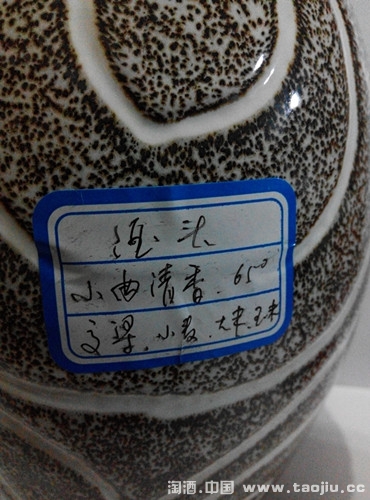 酒头
小曲清香.65°
高粱.小麦.大米.玉米
淘酒.中国 www.taojiu.cc